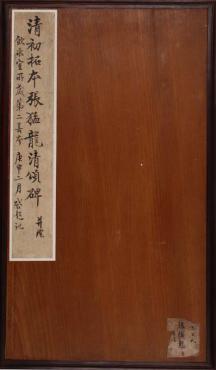 清初拓本張猛龍清頌碑 并陰
飲冰室所藏第二善本 庚申二月 啟超記
張猛龍